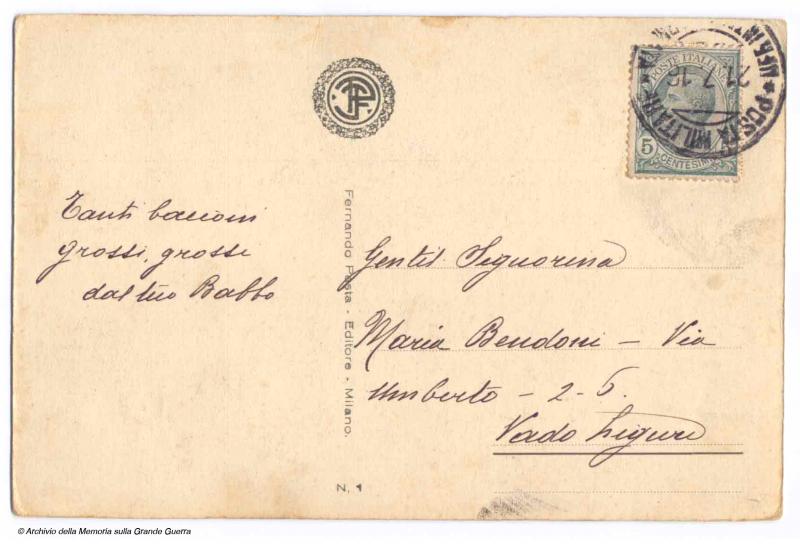 POSTE ITALIANE
5
CENTESIMI
POSTA MILITARE
21.7.16
Tanti baccioni
grossi, grossi
dal tuo Babbo
Fernando Pasta - Editore - Milano.
N. 1
Gentil Signorina
Maria Bendoni - Via
Umberto - 2-5.
Vado Ligure
© Archivio della Memoria sulla Grande Guerra